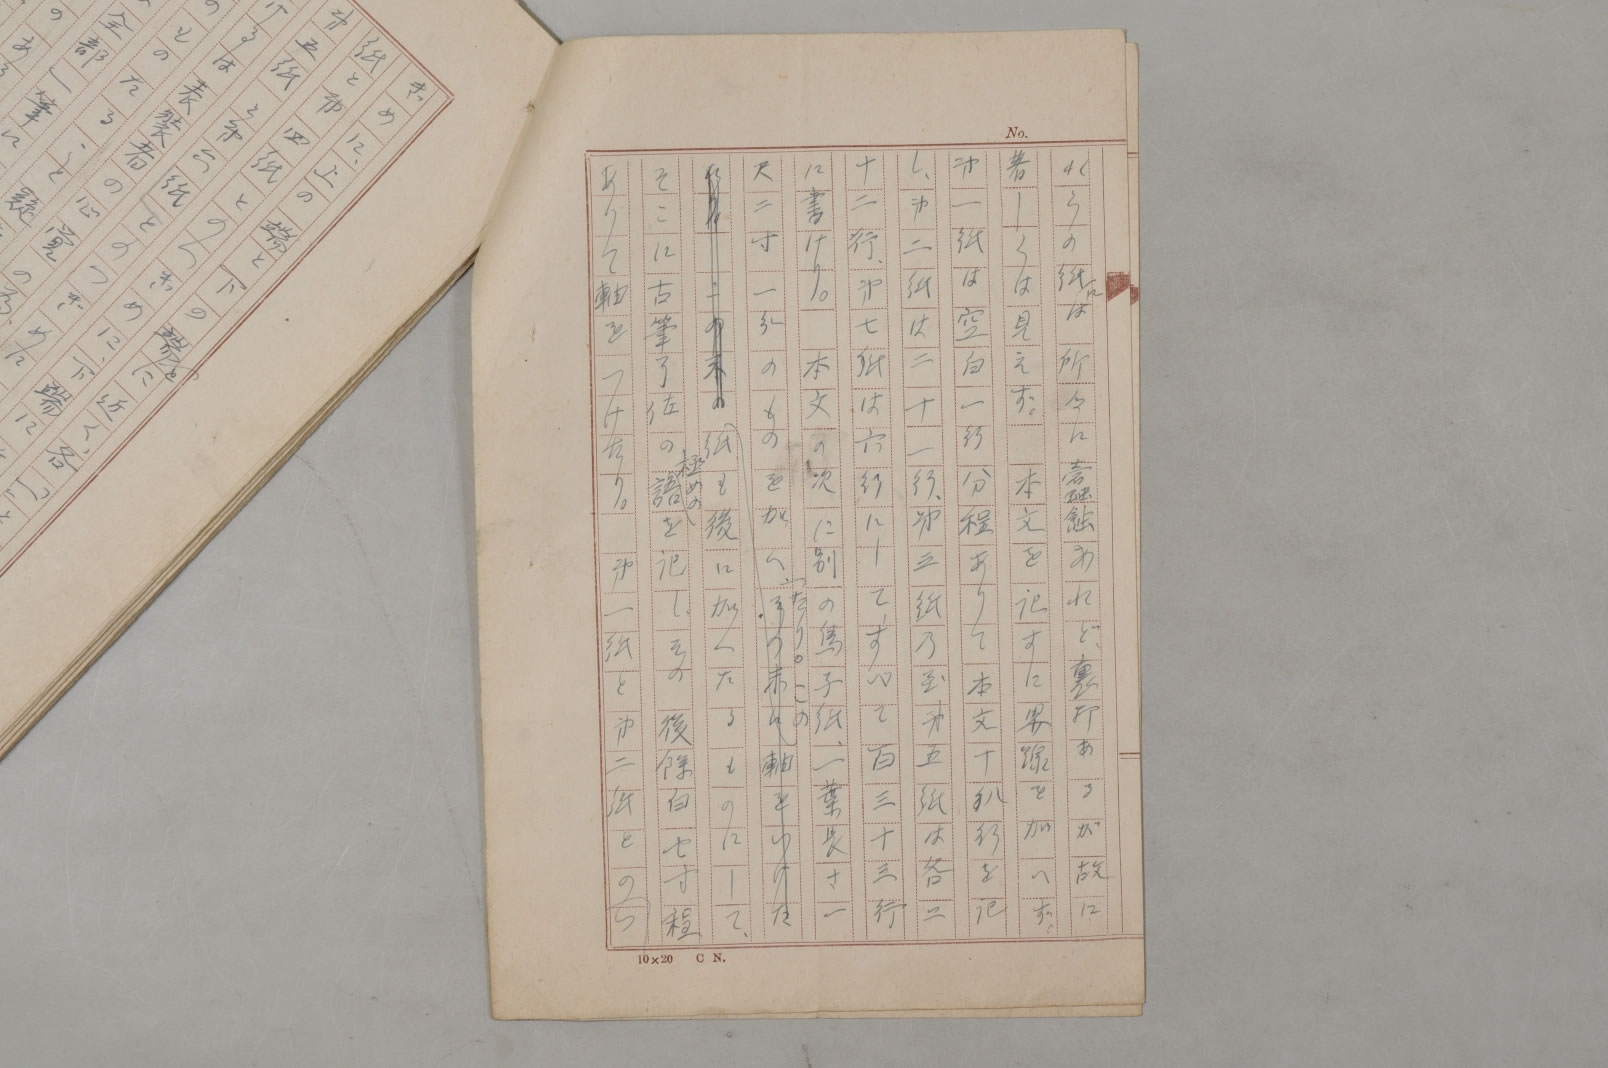 れらの紙は所々に蠹蝕あれど、裏打あるが故に
著しくは見えず。本文を記すに界線を加へず。
第一紙は空白一行分程ありて本文十八行を記
し、第二紙は二十一行、第三紙乃至第五紙は各二
十二行、第七紙は六行にして、すべて百三十三行
に書けり。本文の次に別の鳥子紙、一葉長さ一
尺二寸一分のものを加へたり。この
紙も後に加へたるものにして、
そこに古筆了佐の極めの語を記し、その後餘白七寸程
ありて軸をつけたり。第一紙と第二紙とのつ
ぎめに、上の端と下の端とに近く、各一つ
紙と第四紙とのつぎめに、下端に
第五紙と第六紙とのつぎめに
けるは表装者の心覚の為
のものたること疑
全部一筆に
No.
10×20 C N.